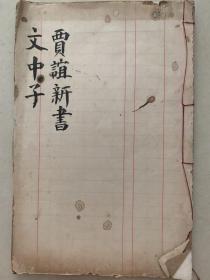 賈誼新書
文中子